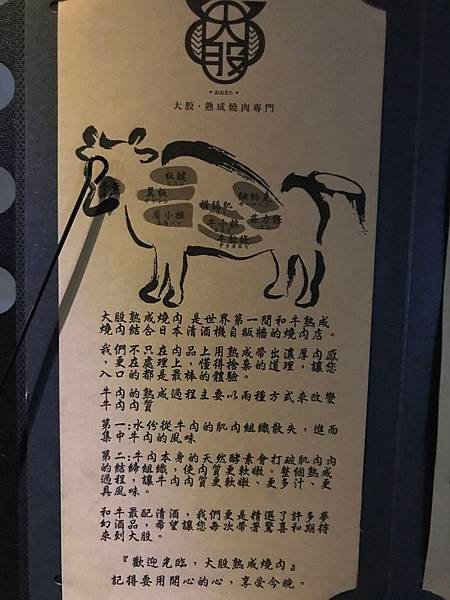 大股
おおまた
大股・熟成燒肉專門
板腱
翼板
紐約克
橫膈肌
菲力條
肩小排
牛小排
牛肋條
大股熟成燒肉 是世界第一間和牛熟成
燒肉結合日本清酒機自販牆的燒肉店。
我們不只在肉品上用熟成帶出濃厚肉感
，更在處理上，懂得捨棄的道理，讓您
入口的都是最棒的體驗。
牛肉的熟成過程主要以兩種方式來改變
牛肉肉質
第一:水份從牛肉的肌肉組織散失，進而
集中牛肉的風味
第二:牛肉本身的天然酵素會打破肌肉內
的結締組織，使肉質更軟嫩。整個熟成
過程，讓牛肉肉質更軟嫩、更多汁、更
具風味。
和牛最配清酒，我們更是精選了許多夢
幻酒品，希望讓您每次帶著驚喜和期待
來到大股。
『歡迎光臨，大股熟成燒肉』
記得要用開心的心，享受今晚。